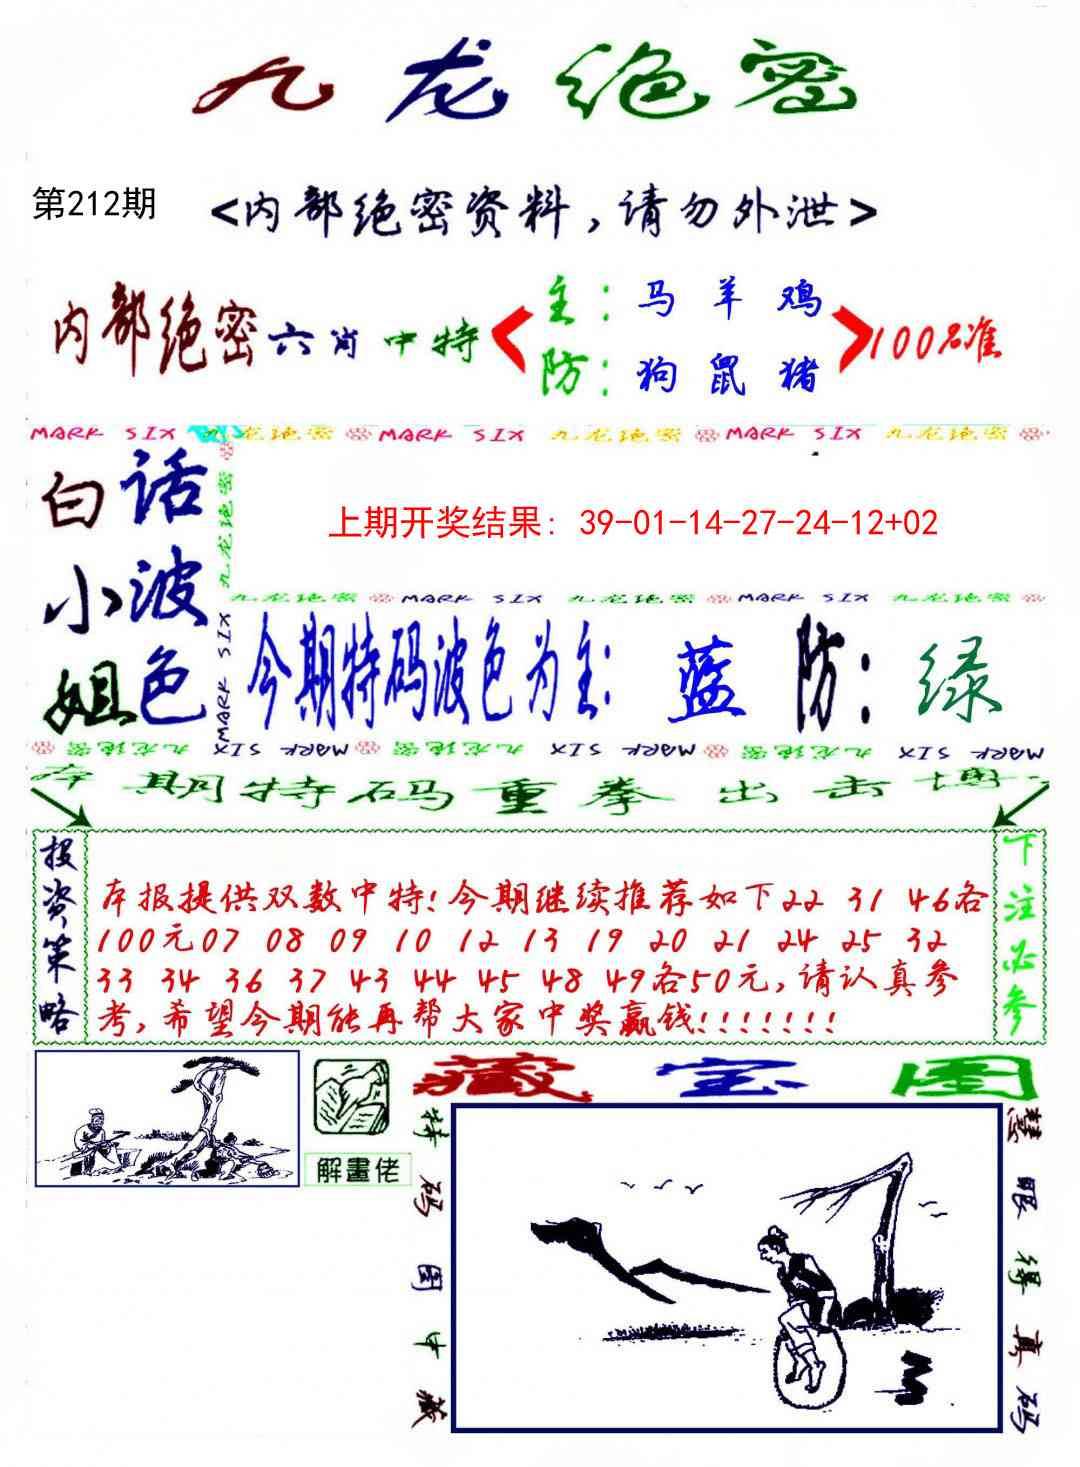 九龙绝密
第212期
<内部绝密资料,请勿外泄>
内部绝密六肖中特
主: 马 羊 鸡
防: 狗 鼠 猪
100%准
MARK SIX 九龙绝密 MARK SIX 九龙绝密 MARK SIX 九龙绝密
白小姐
话波色
九龙绝密
MARK SIX
上期开奖结果: 39-01-14-27-24-12+02
九龙绝密 MARK SIX 九龙绝密 MARK SIX 九龙绝密
今期特码波色为主: 蓝 防: 绿
九龙绝密 MARK SIX 九龙绝密 MARK SIX 九龙绝密 MARK SIX
本期特码重拳出击博
投资策略
本报提供双数中特!今期继续推荐如下22 31 46各
100元07 08 09 10 12 13 19 20 21 24 25 32
33 34 36 37 43 44 45 48 49各50元,请认真参
考,希望今期能再帮大家中奖赢钱!!!!!!!
下注必参
解畫佬
藏宝图
特码图中藏
慧眼得真码